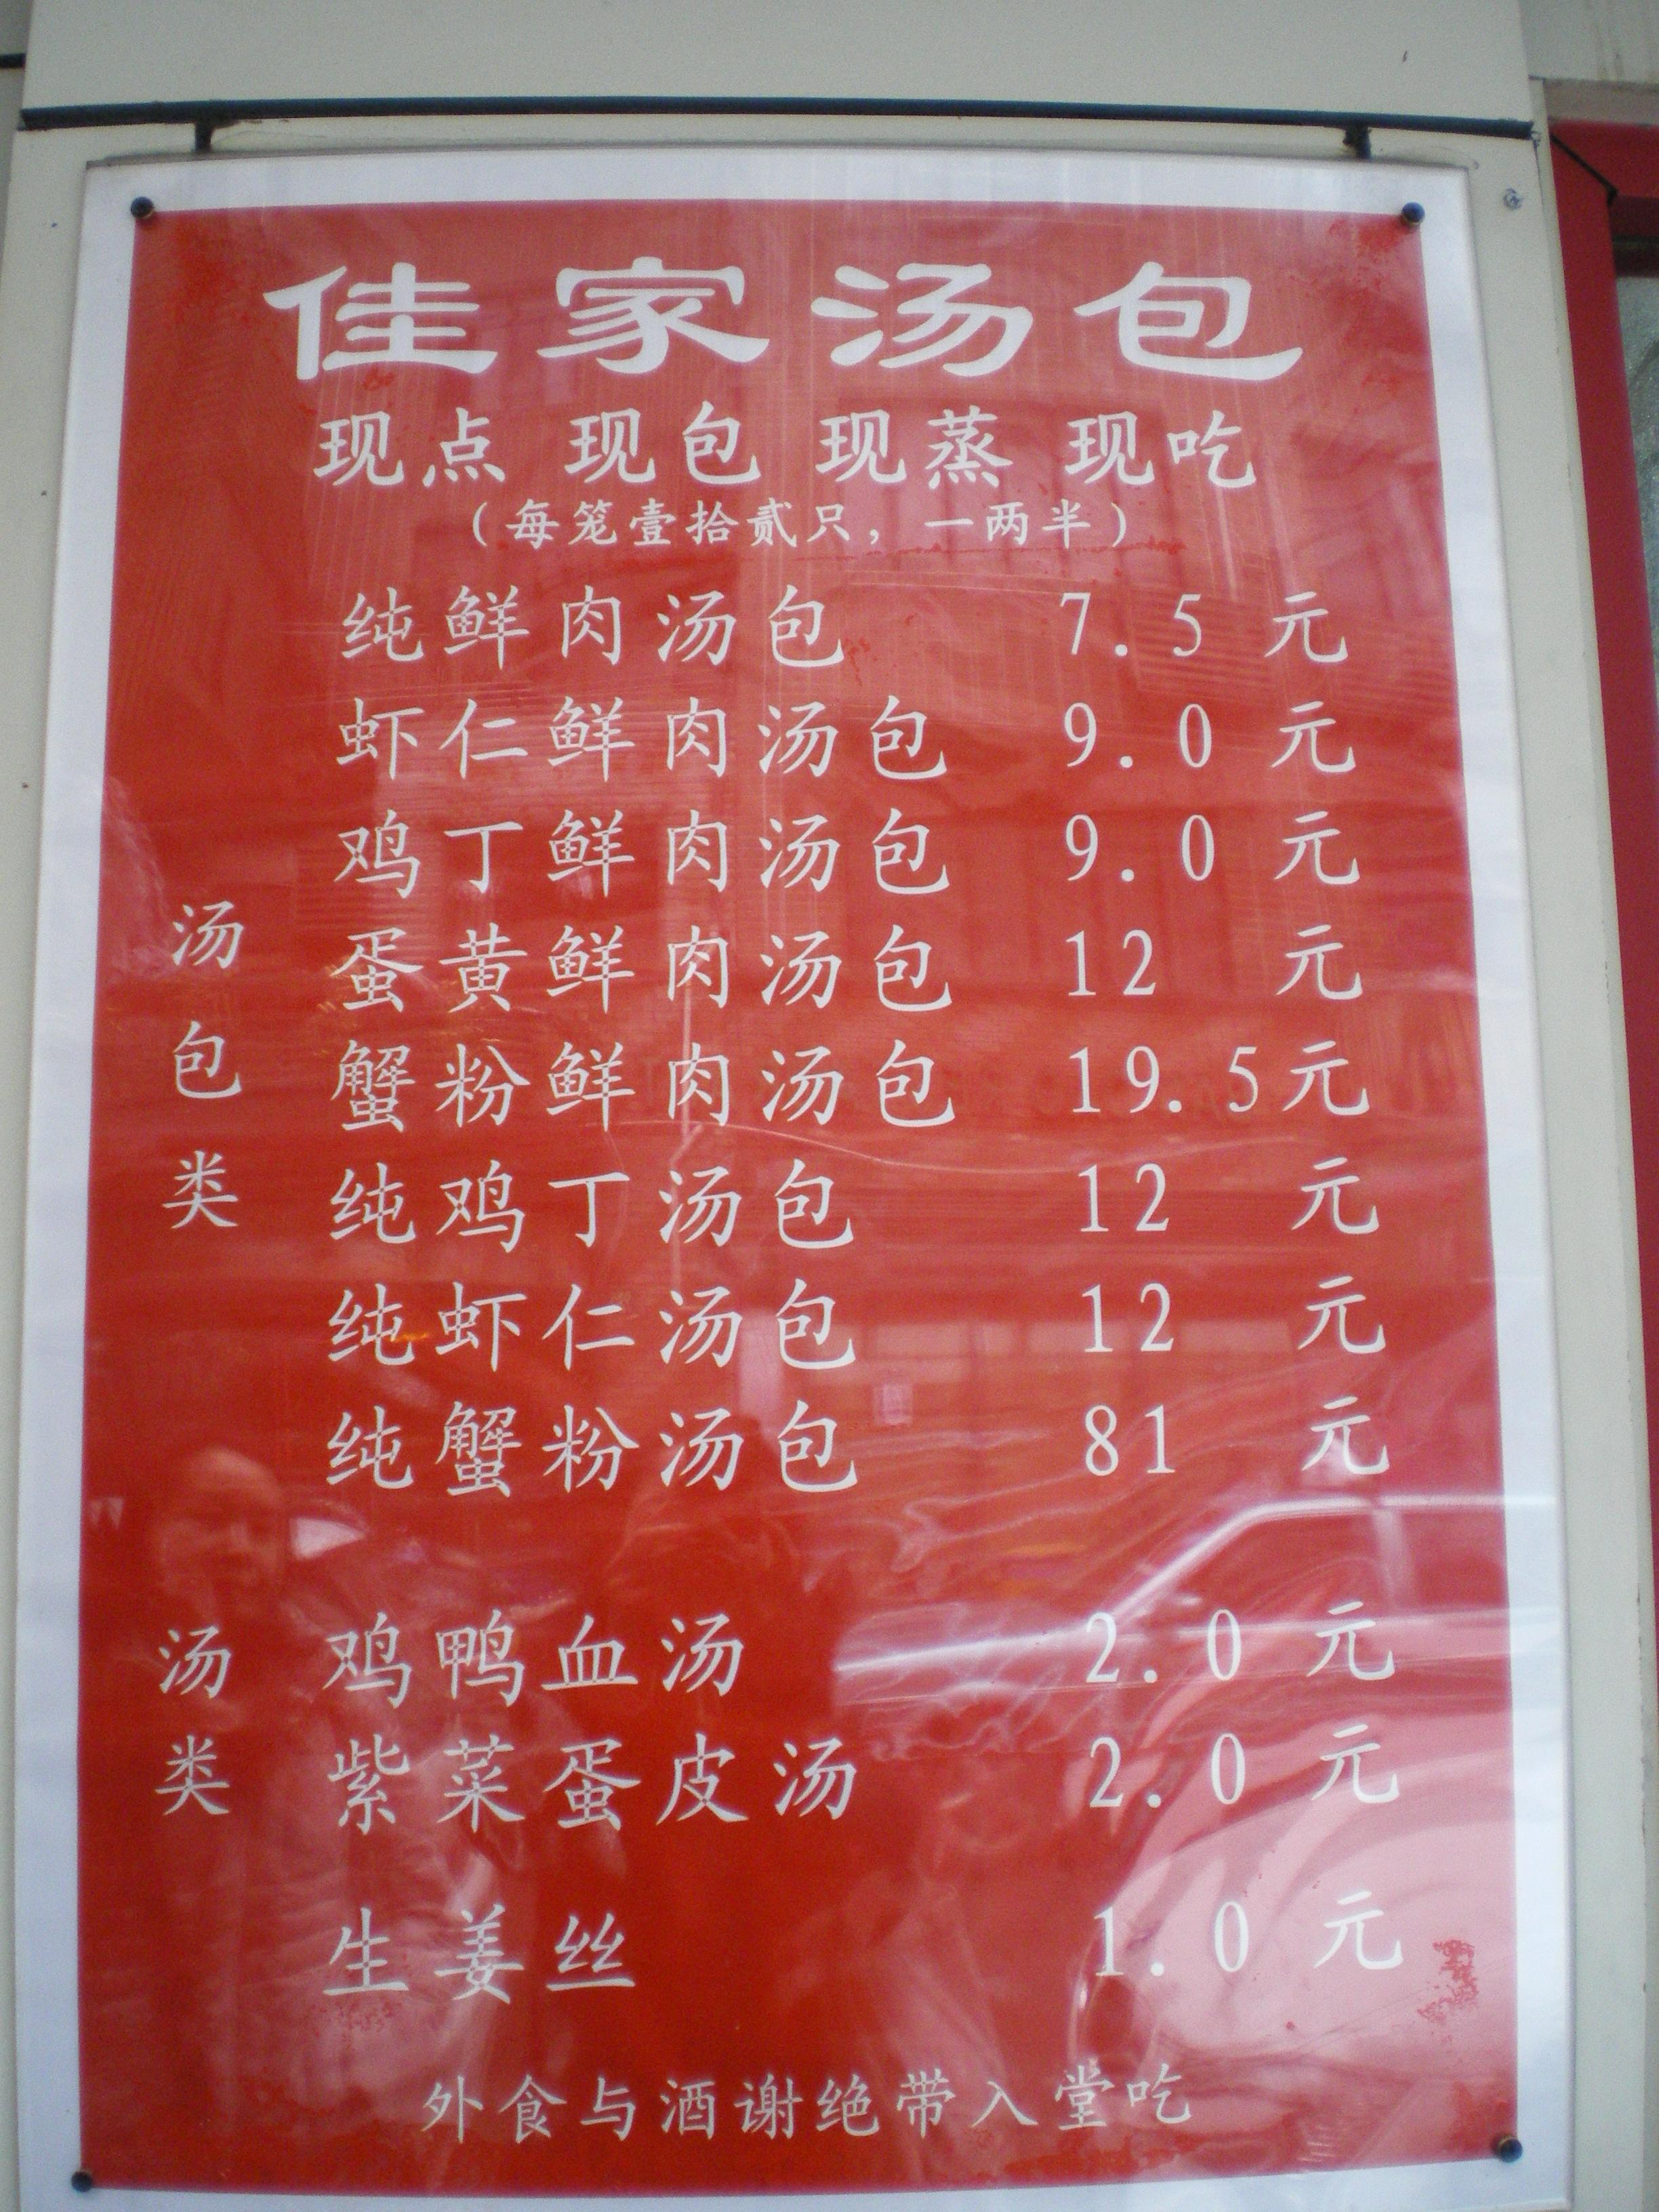 佳家汤包
现点 现包 现蒸 现吃
(每笼壹拾贰只，一两半)
汤包类
纯鲜肉汤包 7.5 元
虾仁鲜肉汤包 9.0 元
鸡丁鲜肉汤包 9.0 元
蛋黄鲜肉汤包 12 元
蟹粉鲜肉汤包 19.5元
纯鸡丁汤包 12 元
纯虾仁汤包 12 元
纯蟹粉汤包 81 元
汤类
鸡鸭血汤 2.0 元
紫菜蛋皮汤 2.0 元
生姜丝 1.0 元
外食与酒谢绝带入堂吃